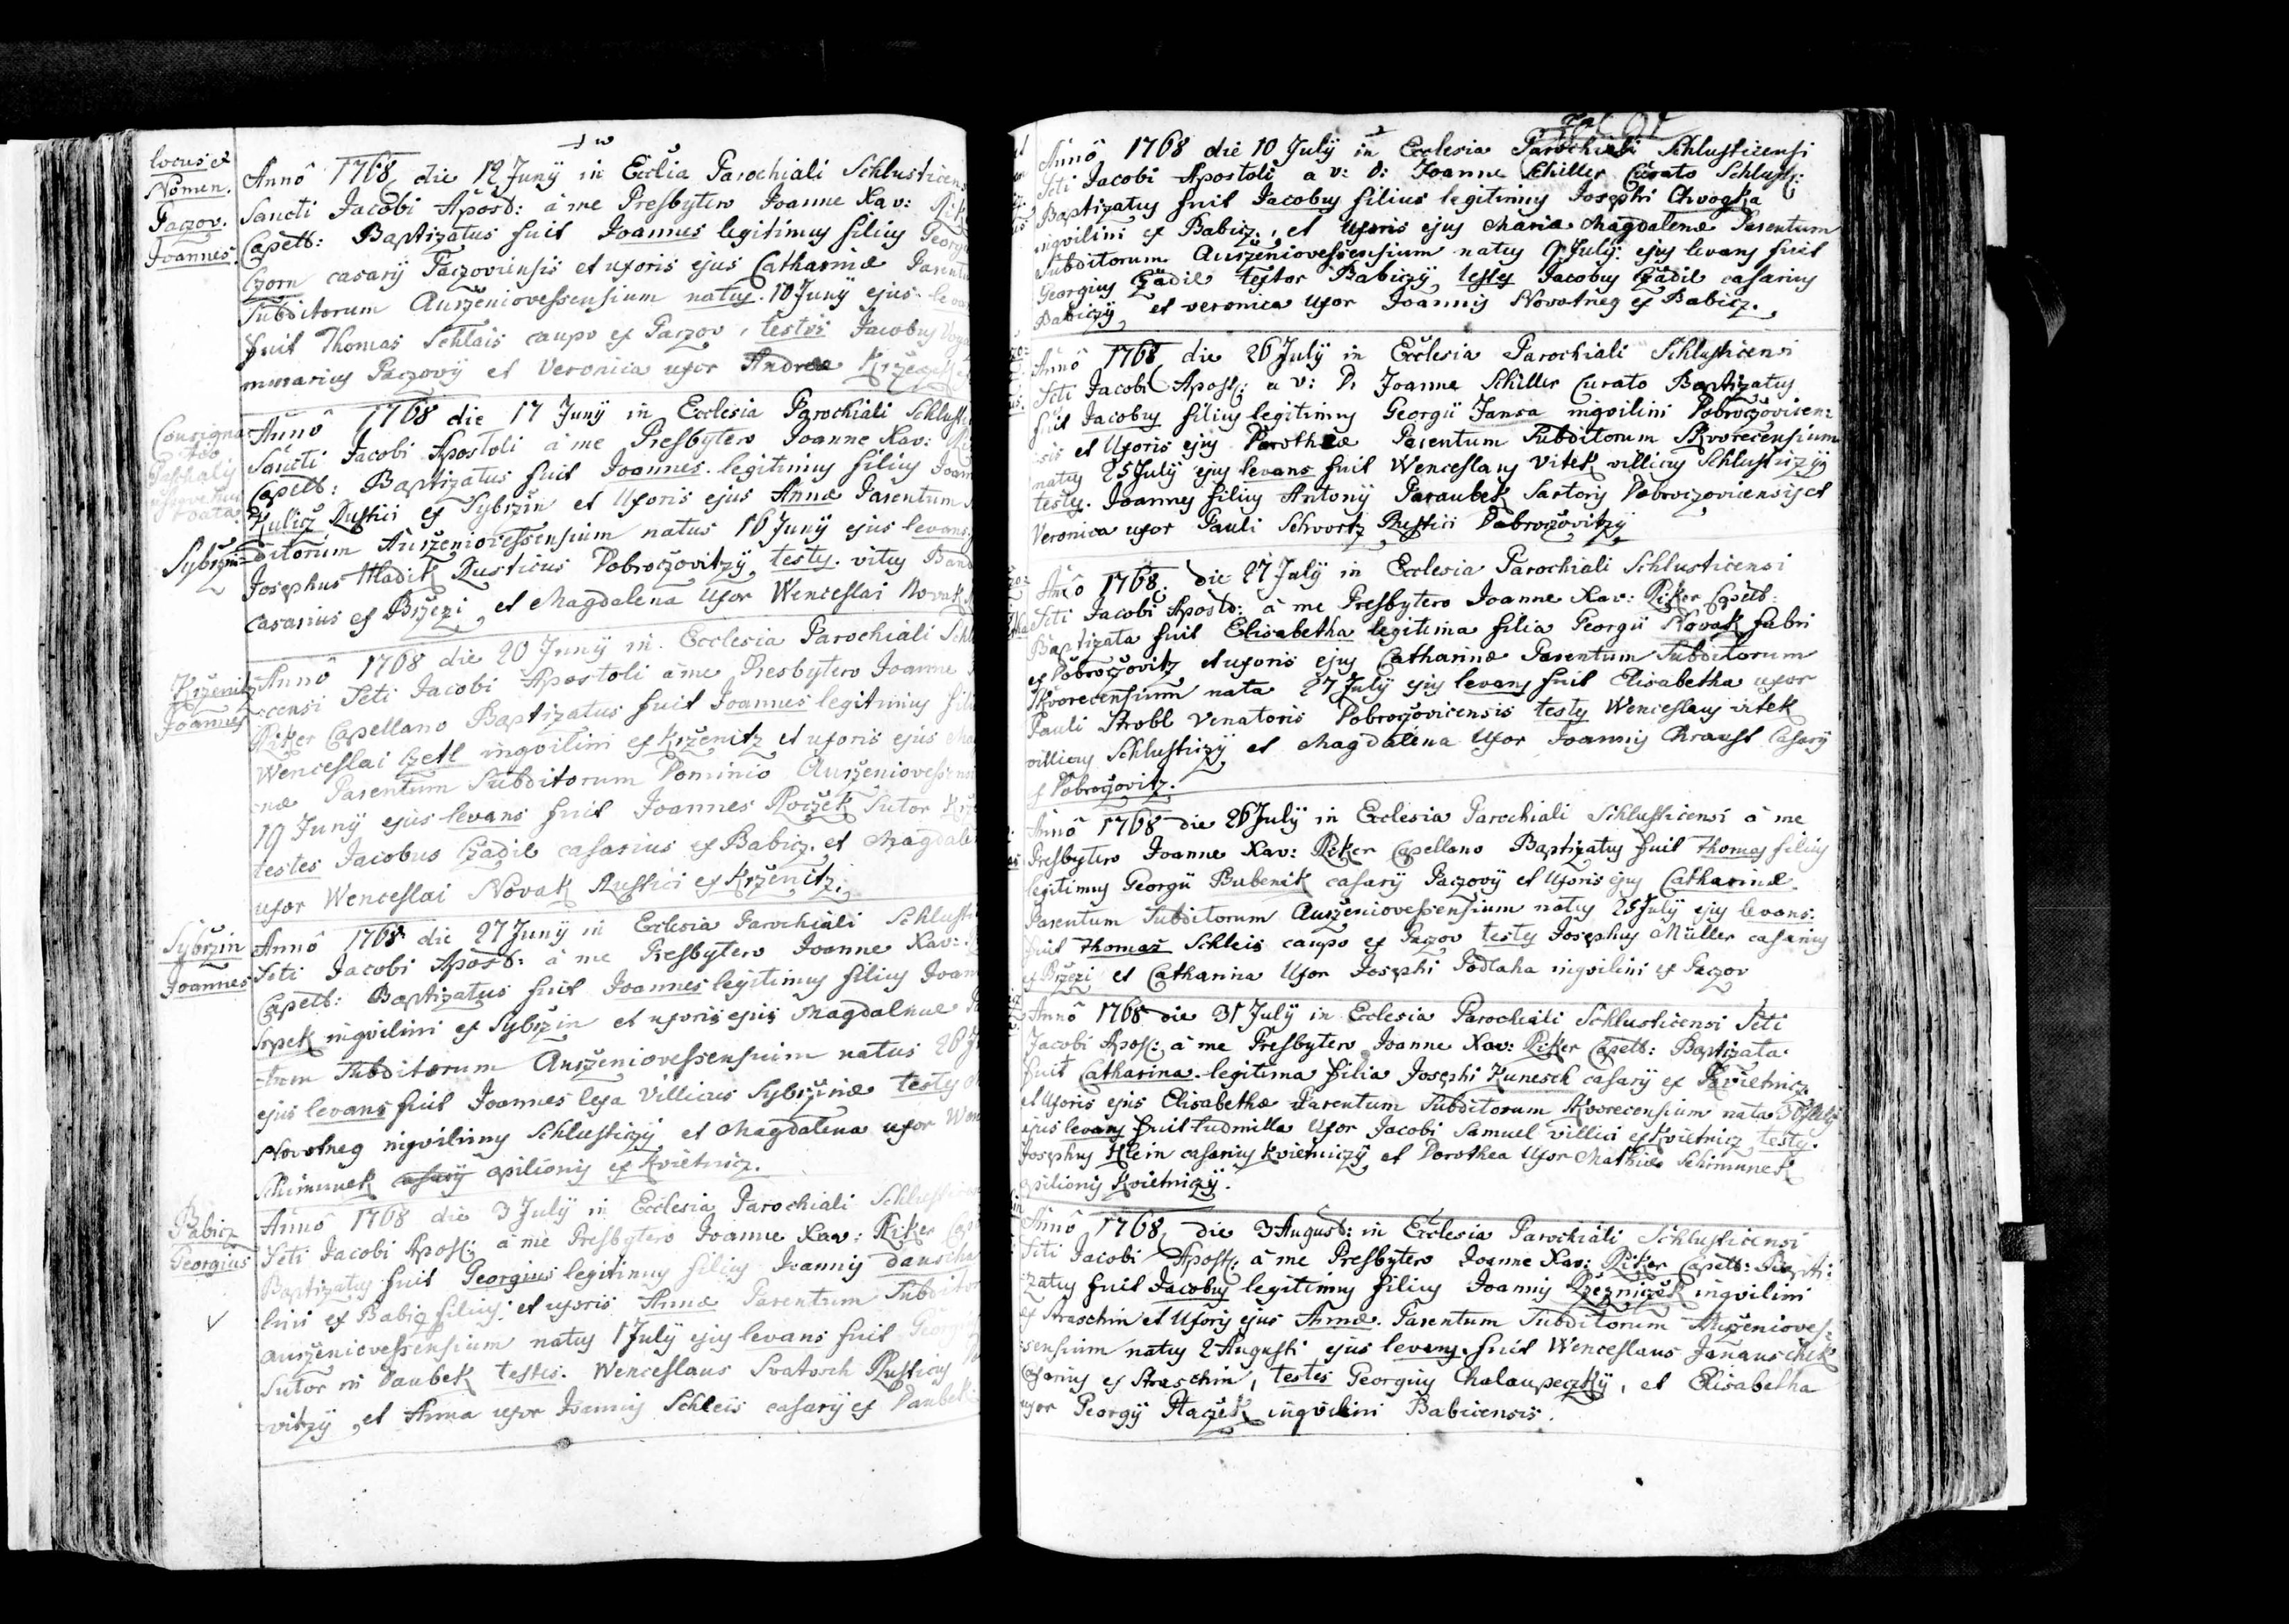 locus et
Nomen.
Paczov.
Joannes.
Annô 1768 die 12 Junÿ in Ecclia Parochiali Schlusticen
Sancti Jacobi Apost: à me Presbytero Joanne Xav: Rik
Capell: Baptizatus fuit Joannes legitimus filius Georgi
Czorn casarÿ Paczoviensis et uxoris ejus Catharinæ Parentu
Subditorum Aurzeniovessensium natus 10 Junÿ ejus levan
fuit Thomas Schlais caupo ex Paczov, testes Jacobus
murarius Paczovÿ et Veronica uxor Andreæ
Consigna
Paschalis
data
Sybrzin
Annô 1768 die 17 Junÿ in Ecclesia Parochiali Schlust
Sancti Jacobi Apostoli à me Presbytero Joanne Xav: Ri
Capell: Baptizatus fuit Joannes legitimus filius Joan
Kulicz Rustici ex Sybrzin et Uxoris ejus Annæ Parentum
ditorum Aurzeniovessensium natus 16 Junÿ ejus levans
Josephus Hladik Rusticus Dobroczovitzÿ testes vitus
casarius ex Brzezi, et Magdalena uxor Wenceslai Novak
Krzenitz
Joannes
Annô 1768 die 20 Junÿ in Ecclesia Parochiali Schlu
-censi Scti Jacobi Apostoli à me Presbytero Joanne
Riker Capellano Baptizatus fuit Joannes legitimus fili
Wenceslai Czetl inqvilini ex Krzenitz et uxoris ejus
næ Parentum Subditorum Dominio Aurzeniovess
19 Junÿ ejus levans fuit Joannes Roczek Sutor Krze
testes Jacobus Czadil casarius ex Babicz et Magdale
uxor Wenceslai Novak Rustici ex Krzenitz.
Sybrzin
Joannes
Annô 1768 die 27 Junÿ in Ecclesia Parochiali Schlusti
Scti Jacobi Apost: à me Presbytero Joanne Xav:
Capell: Baptizatus fuit Joannes legitimus filius Joan
Srpek inqvilini ex Sybrzin et uxoris ejus Magdalenæ
-tum Subditorum Aurzeniovessensium natus 26 J
ejus levans fuit Joannes leja Villicus Sybrzinæ testes
Novotneg inqvilinus Schlusticzÿ et Magdalena uxor Wen
Schimunek casarÿ opilionis ex Kvietnicz.
Babicz
Georgius
Annô 1768 die 3 Julÿ in Ecclesia Parochiali Schlustic
Scti Jacobi Apost: à me Presbytero Joanne Xav: Riker Cap
Baptizatus fuit Georgius legitimus filius Joannis dauscha
lini ex Babicz filius et uxoris Annæ Parentum Subditor
Aurzeniovessensium natus 1 Julÿ ejus levans fuit Georgi
Sutor in Daubek testes Wenceslaus Svatosch Rusticus
-vitzÿ, et Anna uxor Joannis Schleis casarÿ ex Daubek
Annô 1768 die 10 Julÿ in Ecclesia Parochiali Schlusticensi
Scti Jacobi Apostoli a v: d: Joanne Schiller Curato Schlust:
Baptizatus fuit Jacobus filius legitimus Josephi Chvogka
inqvilini ex Babicz, et Uxoris ejus Mariæ Magdalenæ Parentum
Subditorum Aurzeniovessensium natus 9 Julÿ ejus levans fuit
Georgius Czadil textor Babiczÿ, testes Jacobus Czadil casarius
Babiczÿ, et veronica uxor Joannis Novotneg ex Babicz.
Annô 1768 die 26 Julÿ in Ecclesia Parochiali Schlusticensi
Scti Jacobi Apost: a v: D: Joanne Schiller Curato Baptizatus
fuit Jacobus filius legitimus Georgii Jansa inqvilini Dobroczovicen=
sis et Uxoris ejus Dorotheæ Parentum Subditorum Skvorecensium
natus 25 Julÿ ejus levans fuit Wenceslaus Vitek villicus Schlusticzÿ
testes. Joannes filius Antonÿ Paraubek Sartoris Dobroczovicensis et
Veronica uxor Pauli Schvortz Rustici Dobroczovitzÿ
Annô 1768 die 27 Julÿ in Ecclesia Parochiali Schlusticensi
Scti Jacobi Apost: à me Presbytero Joanne Xav: Riker Capell:
Baptizata fuit Elisabetha legitima filia Georgii Novak fabri
ex Dobroczovitz et uxoris ejus Catharinæ Parentum Subditorum
Skvorecensium nata 27 Julÿ ejus levans fuit Elisabetha uxor
Pauli Strobl Venatoris Dobroczovicensis testes Wenceslaus vitek
villicus Schlusticzÿ et Magdalena Uxor Joannis Chraust Casarÿ
ex Dobroczovitz.
Annô 1768 die 26 Julÿ in Ecclesia Parochiali Schlusticensi à me
Presbytero Joanne Xav: Riker Capellano Baptizatus fuit Thomas filius
legitimus Georgii Bubenik casarÿ Paczovÿ et Uxoris ejus Catharinæ
Parentum Subditorum Aurzeniovessensium natus 25 Julÿ ejus levans
fuit Thomas Schleis caupo ex Paczov testes Josephus Müller casarius
ex Brzezi et Catharina Uxor Josephi Podlaha inqvilini ex Paczov
Annô 1768 die 31 Julÿ in Ecclesia Parochiali Schlusticensi Scti
Jacobi Apost: à me Presbytero Joanne Xav: Riker Capell: Baptizata
fuit Catharina legitima filia Josephi Kunesch casarÿ ex Kvietnicz
et Uxoris ejus Elisabethæ Parentum Subditorum Skvorecensium nata 30 Julÿ
ejus levans fuit Ludmilla Uxor Jacobi Samuel villici ex Kvietnicz testes
Josephus Klein casarius Kvietniczÿ et Dorothea Uxor Mathiæ Schimunek
opilionis Kvietniczÿ.
Annô 1768 die 3 August: in Ecclesia Parochiali Schlusticensi
Scti Jacobi Apost: à me Presbytero Joanne Xav: Riker Capell: Bapti:
zatus fuit Jacobus legitimus filius Joannis Rzezniczek inqvilini
ex Straschin et Uxoris ejus Annæ Parentum Subditorum Aurzenioves:
sensium natus 2 Augusti ejus levans fuit Wenceslaus Janauschek
Casarius ex Straschin, testes Georgius Chalaupeczkÿ, et Elisabetha
uxor Georgÿ Ptaczek inqvilini Babicensis.